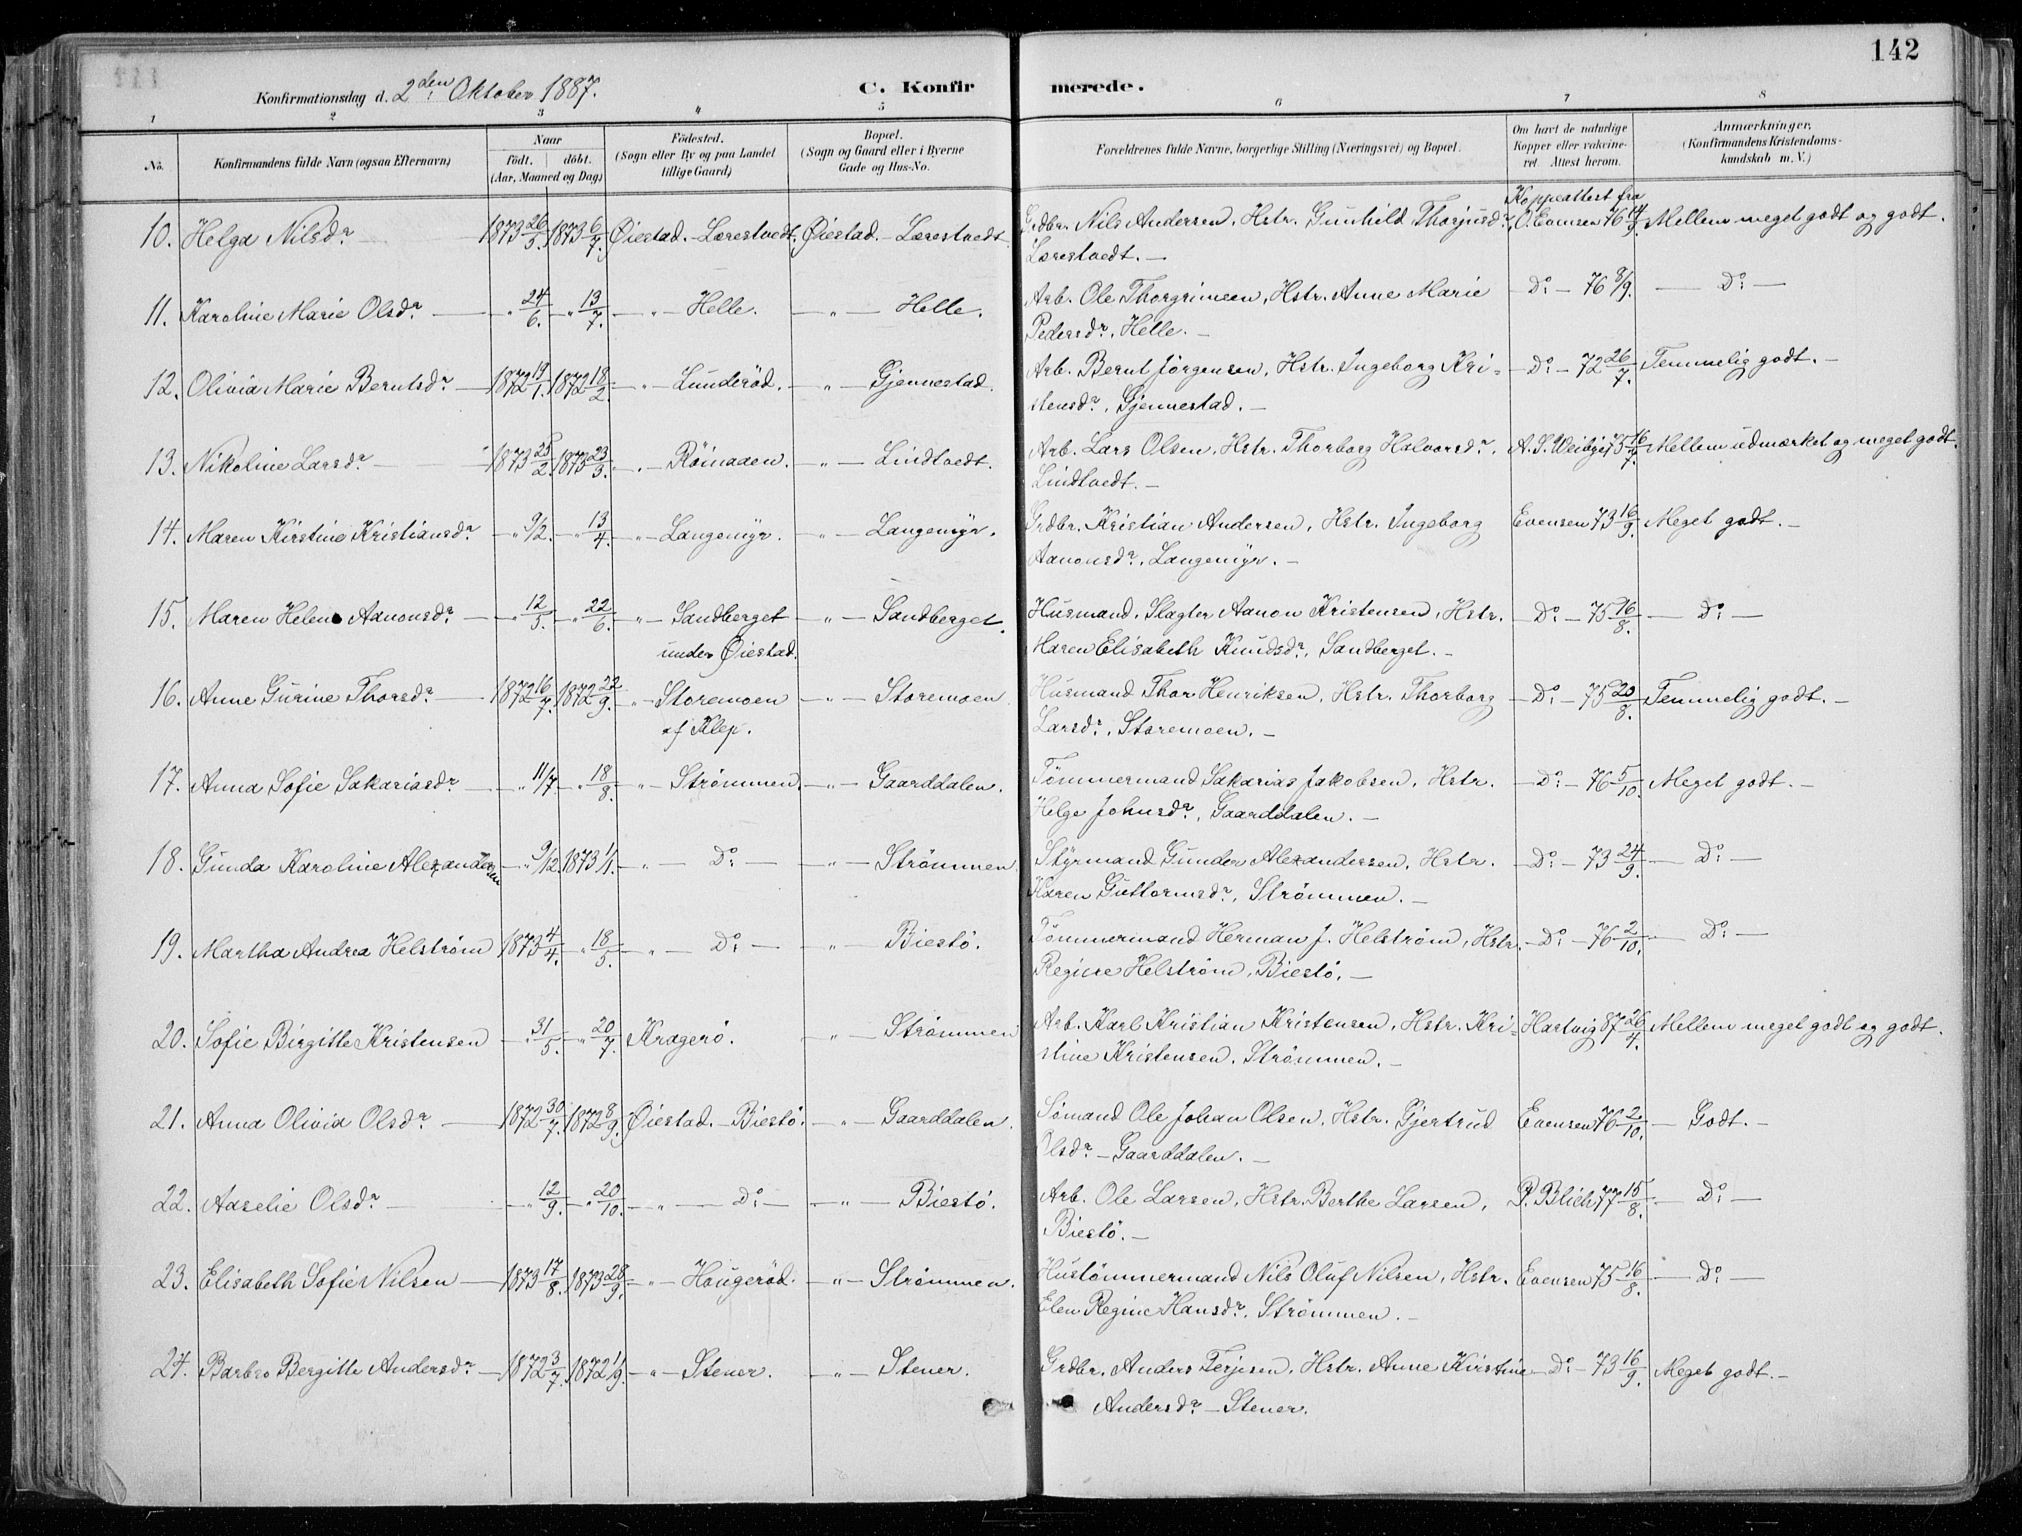 142
Konfirmationsdag d. 2den Oktober 1887.
C. Konfirmerede.
1 2 3 4 5 6 7 8
No. Konfirmandens fulde Navn (ogsaa Efternavn) Naar født. døbt. (Aar, Maaned og Dag) Fødested. (Sogn eller By og paa Landet tillige Gaard) Bopæl. (Sogn og Gaard eller i Byerne Gade og Hus-No. Forældrenes fulde Navne, borgerlige Stilling (Næringsvei) og Bopæl. Om havt de naturlige Kopper eller vakcineret. Attest herom. Anmærkninger, (Konfirmandens Kristendomskundskab m. V.)
Koppeattest fra
10. Helga Nilsdr. 1873 26/5. 1873 6/7. Øiestad. - Lærestvedt. Øiestad. - Lærestvedt. Grdbr. Nils Andersen, Hstr. Gunhild Thorjusdr, O. Evensen 76 14/9. Mellem meget godt og godt.
Lærestvedt. -
11. Karoline Marie Olsdr. - " 24/6. - " 13/7. - " - Helle. - " - Helle. Arb. Ole Thorgrimsen, Hstr. Anne Marie - Do. - 76 8/9. - Do. -
Pedersdr, Helle. -
12. Olivia Marie Berntsdr - 1872 19/1. 1872 18/2. - " - Lunderød. - " - Gjennestad. Arb. Bernt Jørgensen, Hstr. Ingeborg Kri- - Do. - 72 26/7. Temmelig godt. -
stensdr, Gjennestad. -
13. Nikoline Larsdr - 1873 25/2. 1873 23/3. - " - Rømaaen. - " - Lindtvedt. Arb. Lars Olsen, Hstr. Thorborg Halvorsdr. A. S. Weibye 75 16/7. Mellem udmærket og meget godt.
Lindtvedt. -
14. Maren Kirstine Kristiansdr. - " 9/2. - " 13/4. - " - Langemyr. - " - Langemyr. Grdbr. Kristian Andersen, Hstr. Ingeborg Evensen 73 16/9. Meget godt. -
Aanonsdr, Langemyr. -
15. Maren Helene Aanonsdr. - " 12/5. - " 22/6. - " - Sandberget - " - Sandberget. Husmand, Slagter Aanon Kristensen, Hstr. - Do. - 75 16/8. - Do. -
under Øiestad. Maren Elisabeth Knudsdr, Sandberget. -
16. Anne Gurine Thorsdr. - 1872 16/7. 1872 22/9. - " - Storemoen - " - Storemoen. Husmand Thor Henriksen, Hstr. Thorborg - Do. - 75 20/8. Temmelig godt. -
af Klep. Larsdr, Storemoen. -
17. Anna Sofie Sakariasdr. - " 11/7 - " 18/8. - " - Strømmen. - " - Gaarddalen. Tømmermand Sakarias Jakobsen, Hstr. - Do. - 76 5/10. Meget godt. -
Helge Johnsdr, Gaarddalen. -
18. Gunda Karoline Alexandersen - " 9/12. 1873 1/1. - " - Do. - - " - Strømmen. Styrmand Gunder Alexandersen, Hstr. - Do. - 73 24/9. - Do. -
Karen Guttormsdr, Strømmen. -
19. Martha Andrea Helstrøm 1873 4/4. - " 18/5. - " - Do. - " Biestø. Tømmermand Herman J. Helstrøm, Hstr. - Do. - 76 2/10. - Do. -
Regine Helstrøm, Biestø. -
20. Sofie Birgitte Kristensen - " 31/5. - " 20/7. Kragerø. - " - Strømmen Arb. Karl Kristian Kristensen, Hstr. Kri- Hartvig 87 26/4. Mellem meget godt og godt.
stine Kristensen, Strømmen. -
21. Anna Olivia Olsdr. - 1872 30/7. 1872 8/9. Øiestad. - Biestø. - " - Gaarddalen. Sømand Ole Johan Olsen, Hstr. Gjertrud Evensen 76 2/10. - Godt. -
Olsdr - Gaarddalen. -
22. Aaselie Olsdr. - - " 12/9. - " 20/10. - " - Do. - - " - Biestø. Arb. Ole Larsen, Hstr. Berthe Larsen, P. Blich 77 15/8. - Do. -
Biestø. -
23. Elisabeth Sofie Nilsen - 1873 17/8. 1873 28/9. - " - Hougerød. - " - Strømmen. Hustømmermand Nils Oluf Nilsen, Hstr. Evensen 75 16/8. - Do. -
Elen Regine Hansdr, Strømmen. -
24. Barbro Bergitte Andersdr. - 1872 3/7. 1872 1/9. - " - Stener. - " - Stener. Grdbr. Anders Terjesen, Hstr. Anne Kirstine - Do. - 73 16/9. Meget godt. -
Andersdr - Stener.